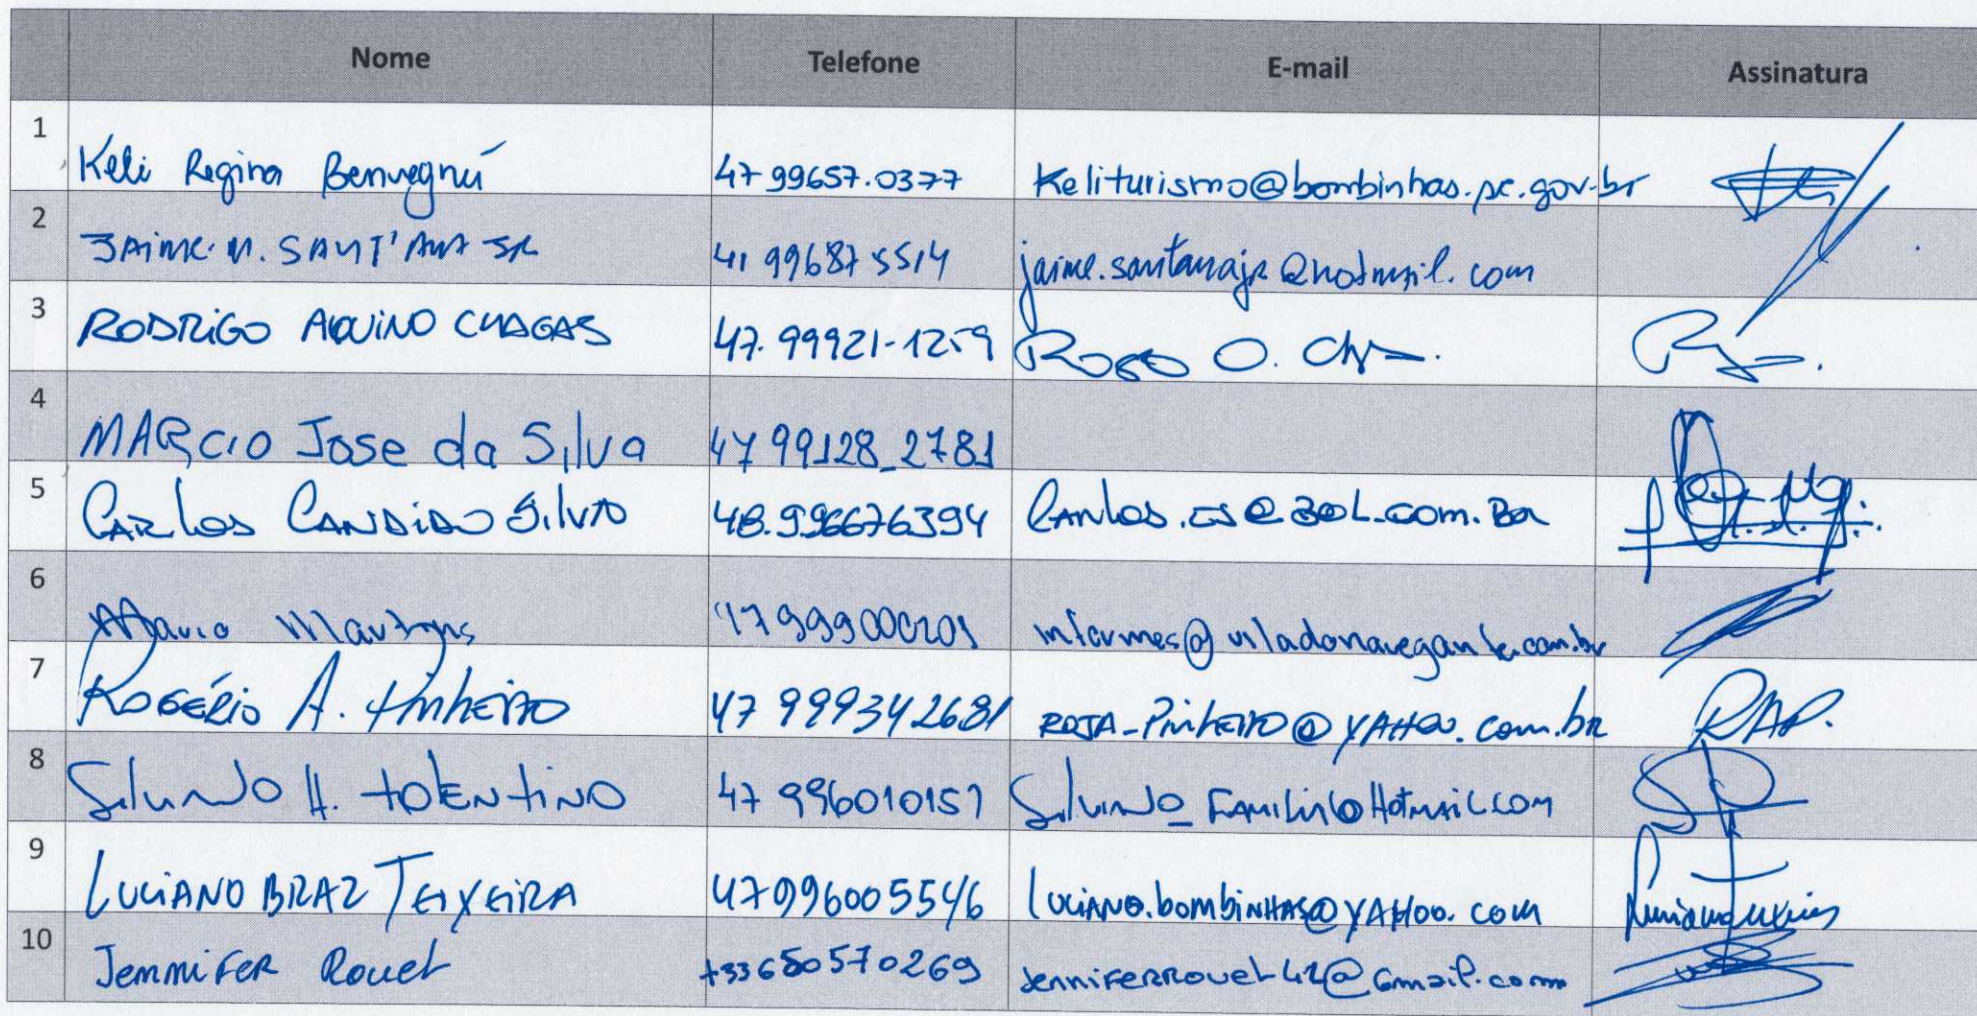 Nome Telefone E-mail Assinatura
1 Keli Regina Benvegnú 47 99657.0377 Keliturismo@bombinhas.sc.gov.br
2 JAIME M. SANT'ANA JR 41 99687 5514 jaime.santanajr@hotmail.com
3 RODRIGO AQUINO CHAGAS 47.99921-1259
4 MARCIO Jose da Silva 47 99128_2781
5 CARLOS CANDIDO SILVA 48.996676394 Carlos.CS@BOL.com.BR
6 Martins informes@viladonavegante.com.br
7 ROGÉRIO A. PinhEIRO 47 999342681 ROJA_PinhEIRO@YAHOO.com.br RAP.
8 Silvino H. tolENtiNO 47 996010157
9 LUCIANO BRAZ TEIXEIRA 47996005546 LUCIANO.bombiNHAS@YAHOO.com
10 JenniFER Rouet +33680570269 JenniFERROUET42@Gmail.com